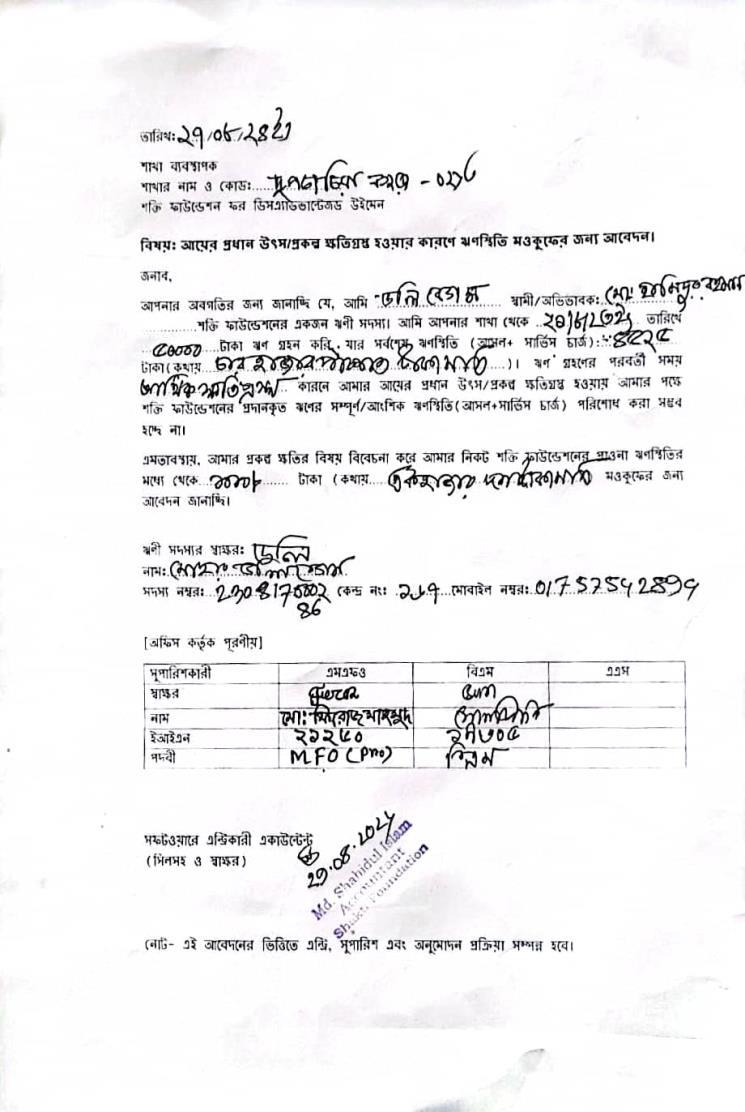 তারিখ:
শাখা ব্যবস্থাপক
শাখার নাম ও কোড:......
শক্তি ফাউন্ডেশন ফর ডিসএ্যাডভান্টেজড উইমেন
বিষয়: আয়ের প্রধান উৎস/প্রকল্প ক্ষতিগ্রস্ত হওয়ার কারণে ঋণস্থিতি মওকুফের জন্য আবেদন।
জনাব,
আপনার অবগতির জন্য জানাচ্ছি যে, আমি ডলি বেগম স্বামী/অভিভাবক: মোঃ
শক্তি ফাউন্ডেশনের একজন ঋণী সদস্য। আমি আপনার শাখা থেকে তারিখে
৫০০০০ টাকা ঋণ গ্রহন করি, যার সর্বশেষ ঋণস্থিতি (আসল+ সার্ভিস চার্জ):
টাকা (কথায় চার হাজার টাকা মাত্র )। ঋণ গ্রহণের পরবর্তী সময়
আর্থিক ক্ষতিগ্রস্ত কারনে আমার আয়ের প্রধান উৎস/প্রকল্প ক্ষতিগ্রস্ত হওয়ায় আমার পক্ষে
শক্তি ফাউন্ডেশনের প্রদানকৃত ঋণের সম্পূর্ণ/আংশিক ঋণস্থিতি(আসল+সার্ভিস চার্জ) পরিশোধ করা সম্ভব
হচ্ছে না।
এমতাবস্থায়, আমার প্রকল্প ক্ষতির বিষয় বিবেচনা করে আমার নিকট শক্তি ফাউন্ডেশনের পাওনা ঋণস্থিতির
মধ্যে থেকে টাকা (কথায় একহাজার দশ টাকা মাত্র মওকুফের জন্য
আবেদন জানাচ্ছি।
ঋণী সদস্যর স্বাক্ষর: ডলি
নাম: মোছাঃ ডলি বেগম
সদস্য নম্বর: 2308170002 কেন্দ্র নং: মোবাইল নম্বর: 01757542894
86
[অফিস কর্তৃক পূরণীয়]
সুপারিশকারী এমএফও বিএম এএম
স্বাক্ষর
নাম মো: ফিরোজ মাহমুদ
ইআইএন ২১২৫০ ১৭৩০৫
পদবী MFO (Pro) বিএম
সফটওয়ারে এন্ট্রিকারী একাউন্টেন্ট
(সিলসহ ও স্বাক্ষর)
29.08.2024
Md. Shahidul Islam
Accountant
Shakti Foundation
নোট- এই আবেদনের ভিত্তিতে এন্ট্রি, সুপারিশ এবং অনুমোদন প্রক্রিয়া সম্পন্ন হবে।